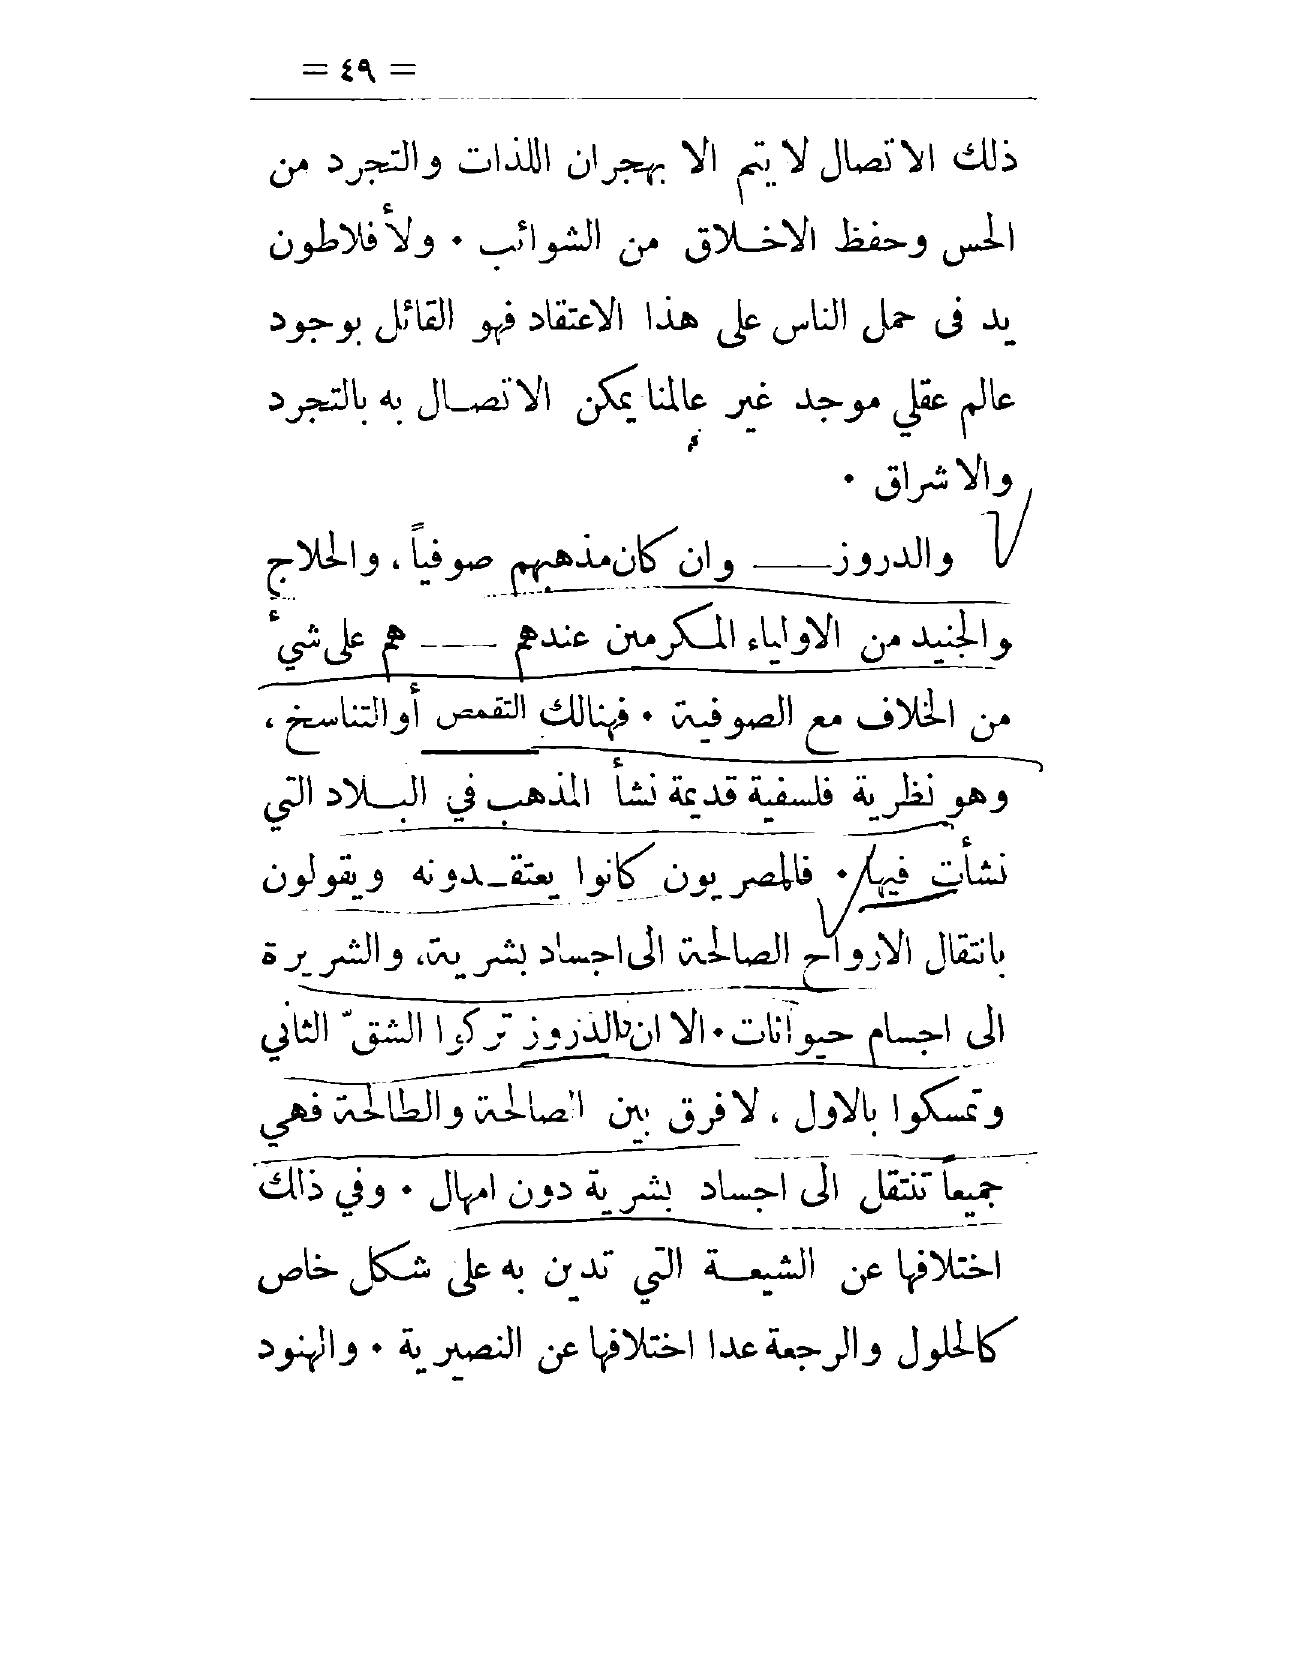 = ٤٩ =
ذلك الاتصال لا يتم الا بهجران اللذات والتجرد من
الحس وحفظ الاخلاق من الشوائب . ولأفلاطون
يد فى حمل الناس على هذا الاعتقاد فهو القائل بوجود
عالم عقلي موجد غير عالمنا يمكن الاتصال به بالتجرد
والاشراق .
والدروز — وان كان مذهبهم صوفياً ، والحلاج
والجنيد من الاولياء المكرمين عندهم — هم على شيء
من الخلاف مع الصوفية . فهنالك التقمص أو التناسخ ،
وهو نظرية فلسفية قديمة نشأ المذهب في البلاد التي
نشأت فيها . فالمصريون كانوا يعتقدونه ويقولون
بانتقال الارواح الصالحة الى اجساد بشرية، والشريرة
الى اجسام حيوانات . الا ان الدروز تركوا الشقّ الثاني
وتمسكوا بالاول ، لا فرق بين الصالحة والطالحة فهي
جميعاً تنتقل الى اجساد بشرية دون امهال . وفي ذلك
اختلافها عن الشيعة التي تدين به على شكل خاص
كالحلول والرجعة عدا اختلافها عن النصيرية . والهنود